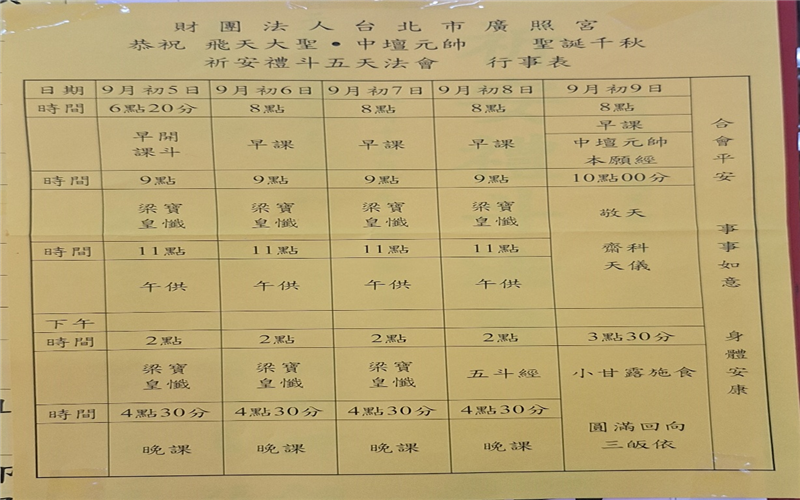 財團法人台北市廣照宮
恭祝 飛天大聖•中壇元帥 聖誕千秋
祈安禮斗五天法會 行事表
日期 9月初5日 9月初6日 9月初7日 9月初8日 9月初9日
時間 6點20分 8點 8點 8點 8點
早開課斗 早課 早課 早課 早課
中壇元帥
本願經
時間 9點 9點 9點 9點 10點00分
梁寶皇懺 梁寶皇懺 梁寶皇懺 梁寶皇懺 敬天
時間 11點 11點 11點 11點 齋科
天儀
午供 午供 午供 午供
下午
時間 2點 2點 2點 2點 3點30分
梁寶皇懺 梁寶皇懺 梁寶皇懺 五斗經 小甘露施食
時間 4點30分 4點30分 4點30分 4點30分
圓滿回向
三皈依
晚課 晚課 晚課 晚課
合會平安 事事如意 身體安康